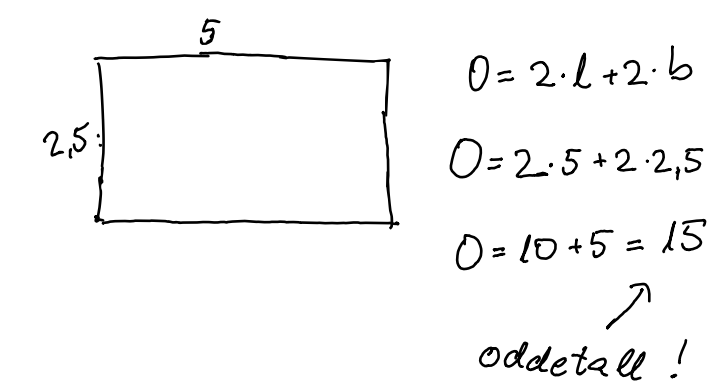 5
2,5
O = 2·l + 2·b
O = 2·5 + 2·2,5
O = 10 + 5 = 15
oddetall !